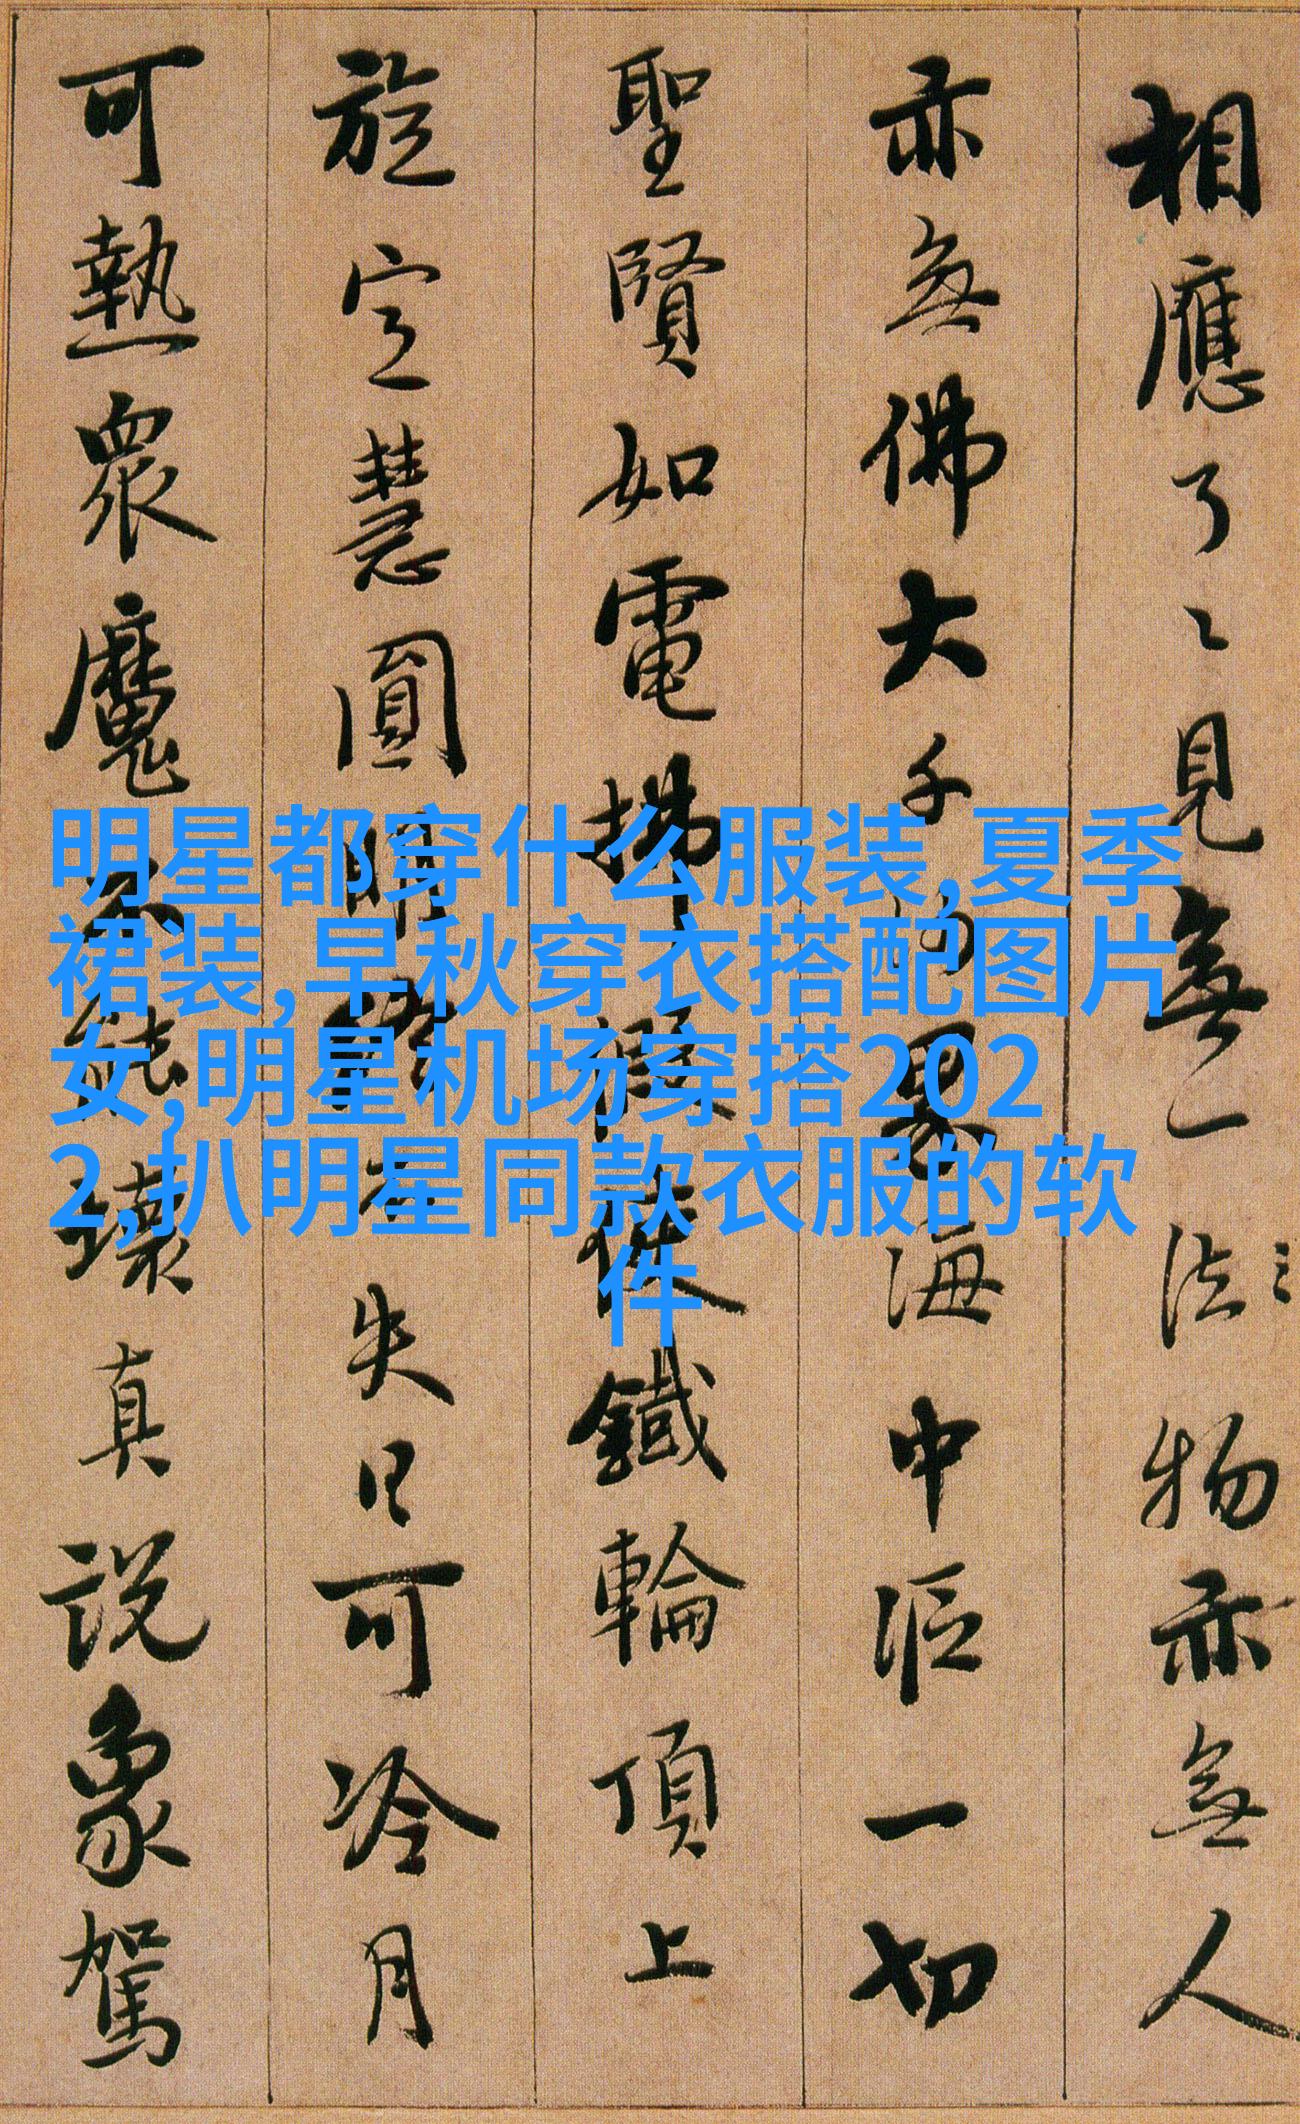 相應了〻見無一法物亦無人
亦無佛大千沙界海中漚一切
聖賢如電拂假使鐵輪頂上
旋定慧圓明終不失日可冷月
可熱衆魔不能壞真説象駕
明星都穿什么服装,夏季
裙装,早秋穿衣搭配图片
女,明星机场穿搭202
2,扒明星同款衣服的软
件